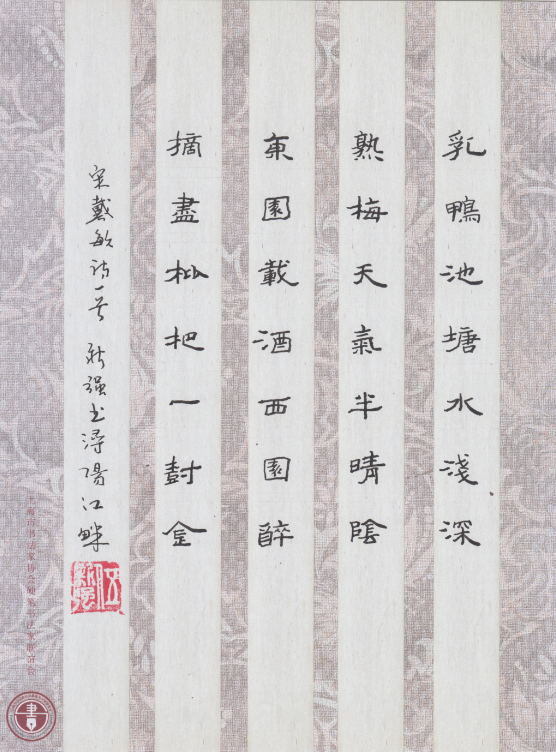 乳鴨池塘水淺深
熟梅天氣半晴陰
東園載酒西園醉
摘盡枇杷一封金
宋戴敏詩一首 新強書潯陽江畔